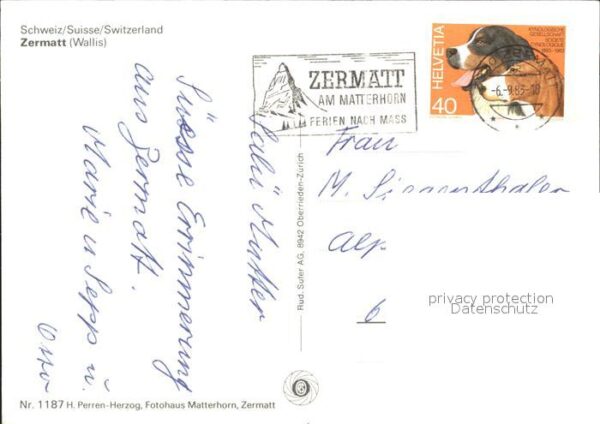 Schweiz/Suisse/Switzerland
Zermatt (Wallis)
Salü Mutter
Süsse Erinnerung
aus Zermatt.
Marie u Sepp u.
Otto
Nr. 1187 H. Perren-Herzog, Fotohaus Matterhorn, Zermatt
Rud. Suter AG, 8942 Oberrieden-Zürich
ZERMATT
AM MATTERHORN
FERIEN NACH MASS
HELVETIA
40
KYNOLOGISCHE
GESELLSCHAFT
SOCIÉTÉ
CYNOLOGIQUE
1883-1983
-6.-9.83-18
Frau
M. Simmenthaler
Alp
6
privacy protection
Datenschutz